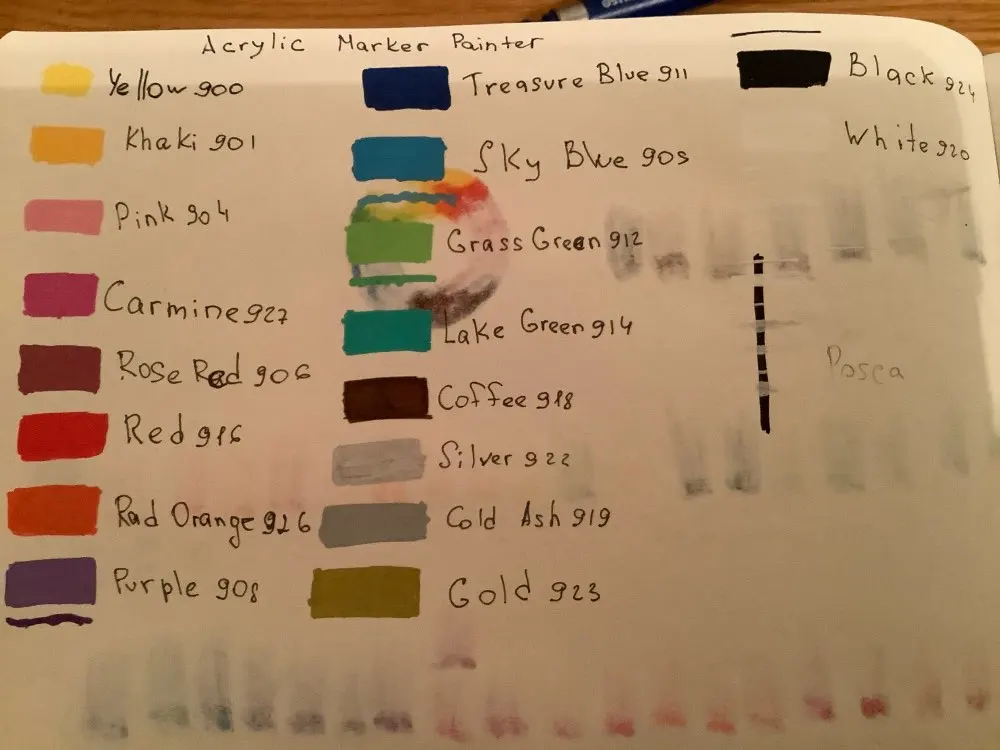 Acrylic Marker Painter
Yellow 900
Khaki 901
Pink 904
Carmine 927
Rose Red 906
Red 916
Rad Orange 926
Purple 908
Treasure Blue 911
Sky Blue 905
Grass Green 912
Lake Green 914
Coffee 918
Silver 922
Cold Ash 919
Gold 923
Black 924
White 920
Posca